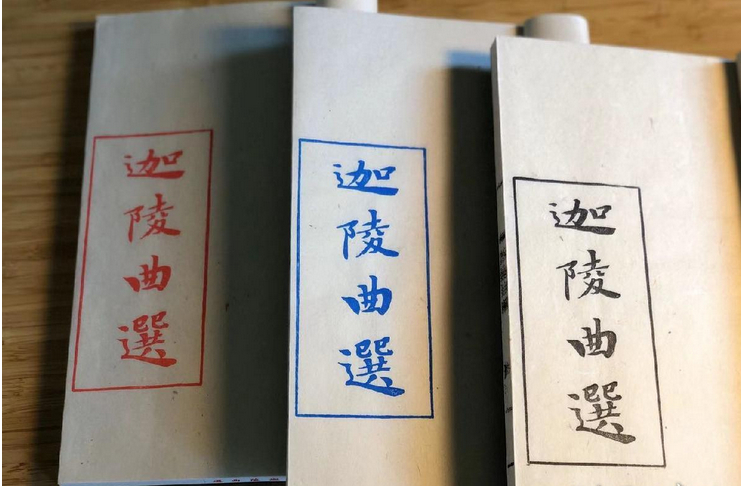 迦陵曲選
迦陵曲選
迦陵曲選